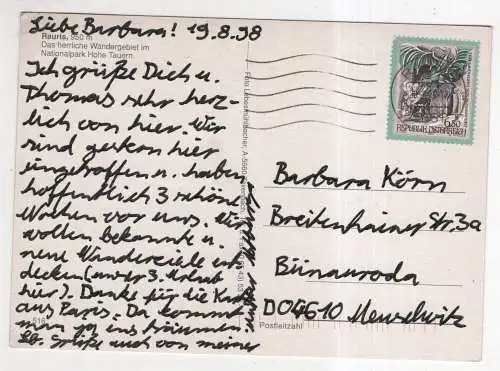 Liebe Barbara! 19.8.98
Rauris, 950 m
Das herrliche Wandergebiet im
Nationalpark Hohe Tauern.
Ich grüße Dich u.
Thomas sehr herz-
lich von hier. Wir
sind gestern hier
eingetroffen u. haben
hoffentlich 3 schöne
Wochen vor uns. Wir
wollen bekannte u.
neue Wanderziele ent
decken (unser 3. Urlaub
hier). Danke für die Karte
aus Paris. Da kommt
man ja ins träumen.
Lb. Grüße auch von meiner
516
Foto Lebesmühlbacher, A-5660
6.50
REPUBLIK ÖSTERREICH
Barbara Körn
Breitenhainer Str. 3a
Bünauroda
D04610 Meuselwitz
Postleitzahl